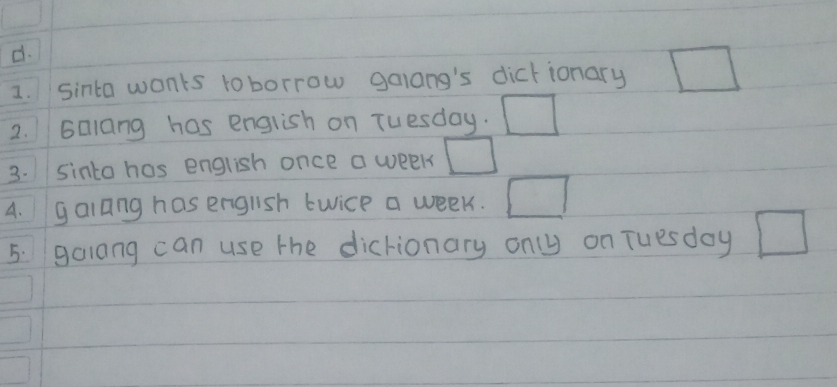 d.
1. Sinta wants to borrow galang's dictionary
2. Galang has english on Tuesday.
3. Sinta has english once a week
4. galang has english twice a week.
5. galang can use the dictionary only on Tuesday